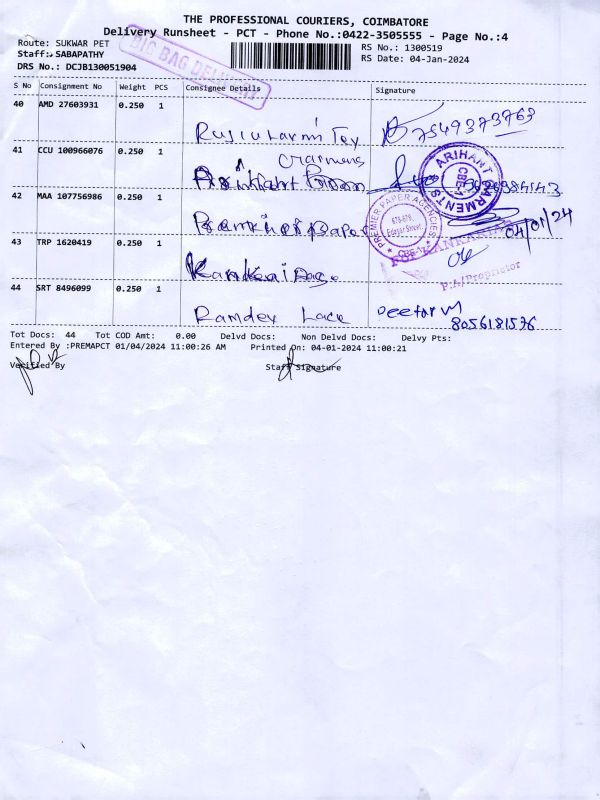 THE PROFESSIONAL COURIERS, COIMBATORE
Delivery Runsheet - PCT - Phone No.:0422-3505555 - Page No.:4
Route: SUKWAR PET
RS No.: 1300519
Staff: SABAPATHY
RS Date: 04-Jan-2024
DRS No.: DCJB130051904
BIG BAG DELIVERY
S No Consignment No Weight PCS Consignee Details Signature
40 AMD 27603931 0.250 1
7549373763
41 CCU 100966076 0.250 1
ARIHANT GARMENTS CBE-1
42 MAA 107756986 0.250 1
PREMIER PAPER AGENCIES
04/01/24
43 TRP 1620419 0.250 1
Proprietor
44 SRT 8496099 0.250 1 Ramdev Lace
8056181536
Tot Docs: 44 Tot COD Amt: 0.00 Delvd Docs: Non Delvd Docs: Delvy Pts:
Entered By :PREMAPCT 01/04/2024 11:00:26 AM Printed On: 04-01-2024 11:00:21
Verified By Staff Signature